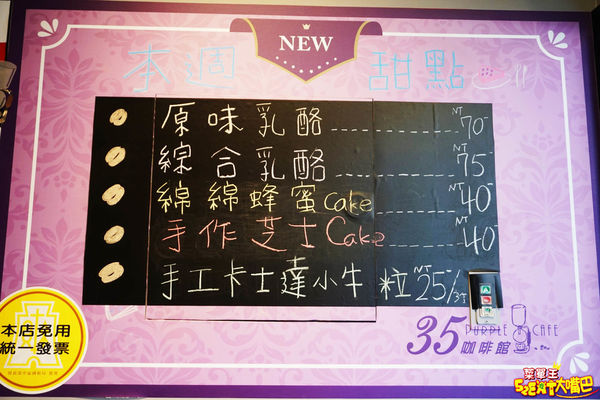 NEW
本週 甜點
原味乳酪 NT 70
綜合乳酪 NT 75
綿綿蜂蜜Cake NT 40
手作芝士Cake NT 40
手工卡士達小牛粒 NT 25/3个
35 PURPLE CAFE
咖啡館
本店免用
統一發票
菜單王
52EAT大嘴巴